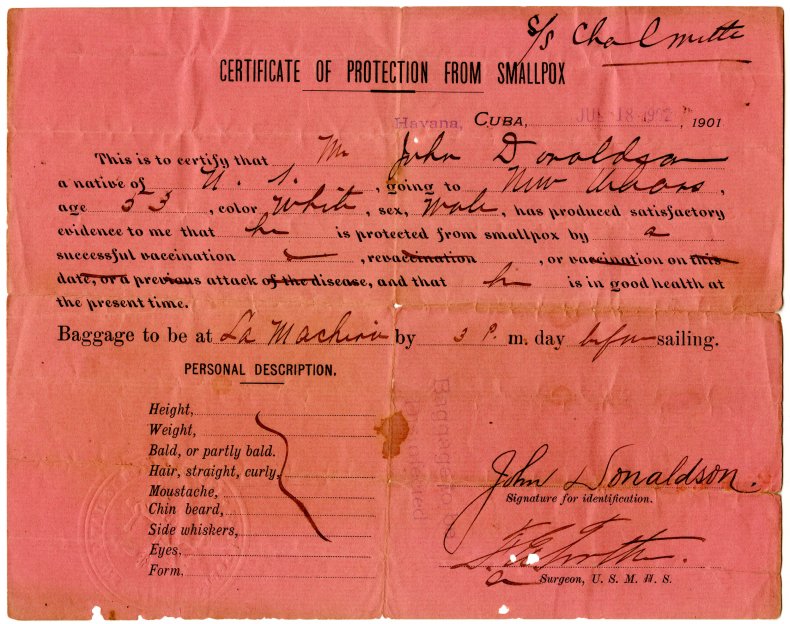 S/S Chalmette
CERTIFICATE OF PROTECTION FROM SMALLPOX
Havana, CUBA, JUL 18 1902, 1901
This is to certify that Mr John Donaldson
a native of U. S., going to New Orleans,
age 53, color White, sex, Male, has produced satisfactory
evidence to me that he is protected from smallpox by a
successful vaccination, revaccination, or vaccination on this
date, or a previous attack of the disease, and that he is in good health at
the present time.
Baggage to be at La Machina by 3 P. m. day before sailing.
PERSONAL DESCRIPTION.
Height,
Weight,
Bald, or partly bald.
Hair, straight, curly,
Moustache,
Chin beard,
Side whiskers,
Eyes,
Form.
Baggage to be
John Donaldson.
Signature for identification.
Surgeon, U. S. M. H. S.